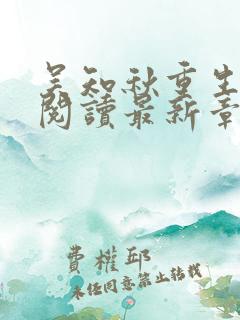 吴知秋重生
閱讀最新章
費權邱
未经同意禁止转载